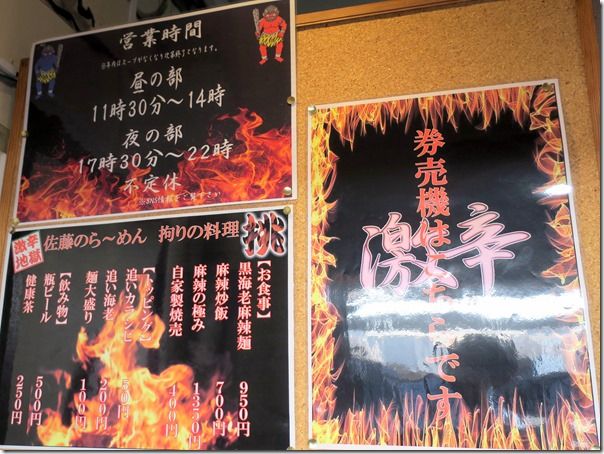 営業時間
昼の部
11時30分～14時
夜の部
17時30分～22時
不定休
激辛
地獄
佐藤のら～めん 拘りの料理 挑
【お食事】
黒海老麻辣麺 950円
麻辣炒飯 700円
麻辣の極み 1350円
自家製焼売 400円
【トッピング】
追いカラシビ
追い海老 200円
麺大盛り 100円
【飲み物】
瓶ビール 500円
健康茶 250円
激辛
券売機はこちらです